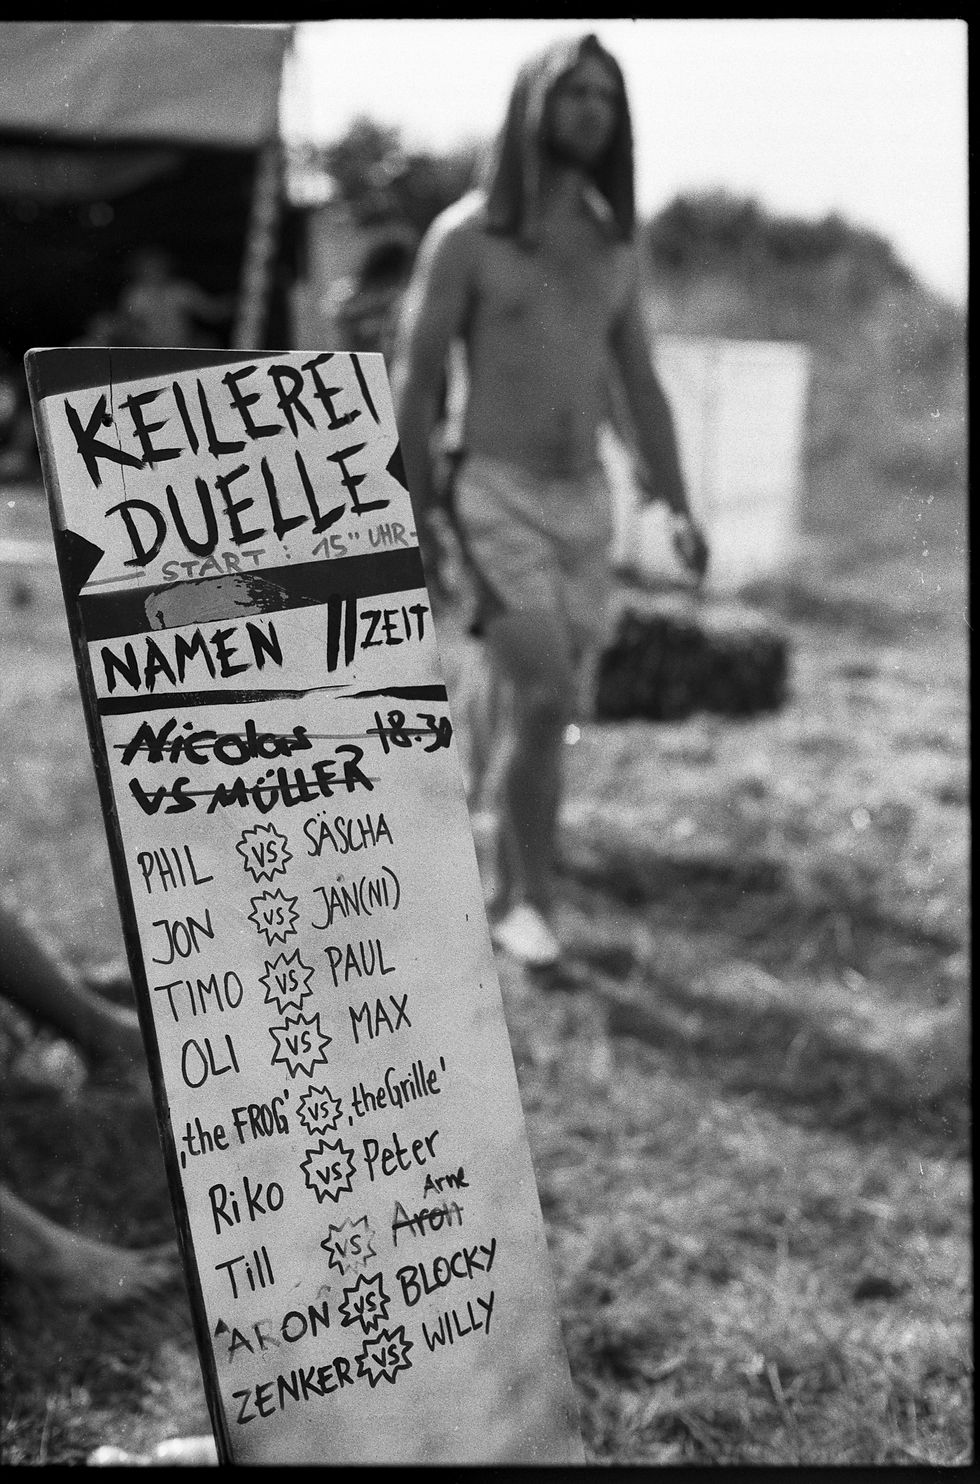 KEILEREI
DUELLE
START : 15" UHR-
NAMEN // ZEIT
Nicolas 18.30
VS MÜLLER
PHIL VS SÄSCHA
JON VS JAN(NI)
TIMO VS PAUL
OLI VS MAX
‚the FROG' VS ‚theGrille'
Riko VS Peter
Arne
Till VS Aron
ARON VS BLOCKY
ZENKER VS WILLY